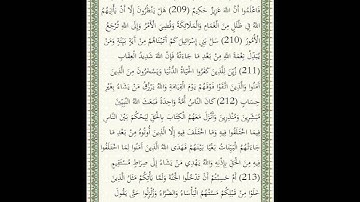 فَاعْلَمُوا أَنَّ اللَّهَ عَزِيزٌ حَكِيمٌ (209) هَلْ يَنْظُرُونَ إِلَّا أَنْ يَأْتِيَهُمُ
اللَّهُ فِي ظُلَلٍ مِنَ الْغَمَامِ وَالْمَلَائِكَةُ وَقُضِيَ الْأَمْرُ وَإِلَى اللَّهِ تُرْجَعُ
الْأُمُورُ (210) سَلْ بَنِي إِسْرَائِيلَ كَمْ آتَيْنَاهُمْ مِنْ آيَةٍ بَيِّنَةٍ وَمَنْ
يُبَدِّلْ نِعْمَةَ اللَّهِ مِنْ بَعْدِ مَا جَاءَتْهُ فَإِنَّ اللَّهَ شَدِيدُ الْعِقَابِ
(211) زُيِّنَ لِلَّذِينَ كَفَرُوا الْحَيَاةُ الدُّنْيَا وَيَسْخَرُونَ مِنَ الَّذِينَ
آمَنُوا وَالَّذِينَ اتَّقَوْا فَوْقَهُمْ يَوْمَ الْقِيَامَةِ وَاللَّهُ يَرْزُقُ مَنْ يَشَاءُ بِغَيْرِ
حِسَابٍ (212) كَانَ النَّاسُ أُمَّةً وَاحِدَةً فَبَعَثَ اللَّهُ النَّبِيِّينَ
مُبَشِّرِينَ وَمُنْذِرِينَ وَأَنْزَلَ مَعَهُمُ الْكِتَابَ بِالْحَقِّ لِيَحْكُمَ بَيْنَ النَّاسِ
فِيمَا اخْتَلَفُوا فِيهِ وَمَا اخْتَلَفَ فِيهِ إِلَّا الَّذِينَ أُوتُوهُ مِنْ بَعْدِ مَا
جَاءَتْهُمُ الْبَيِّنَاتُ بَغْيًا بَيْنَهُمْ فَهَدَى اللَّهُ الَّذِينَ آمَنُوا لِمَا اخْتَلَفُوا
فِيهِ مِنَ الْحَقِّ بِإِذْنِهِ وَاللَّهُ يَهْدِي مَنْ يَشَاءُ إِلَى صِرَاطٍ مُسْتَقِيمٍ
(213) أَمْ حَسِبْتُمْ أَنْ تَدْخُلُوا الْجَنَّةَ وَلَمَّا يَأْتِكُمْ مَثَلُ الَّذِينَ
خَلَوْا مِنْ قَبْلِكُمْ مَسَّتْهُمُ الْبَأْسَاءُ وَالضَّرَّاءُ وَزُلْزِلُوا حَتَّى يَقُولَ